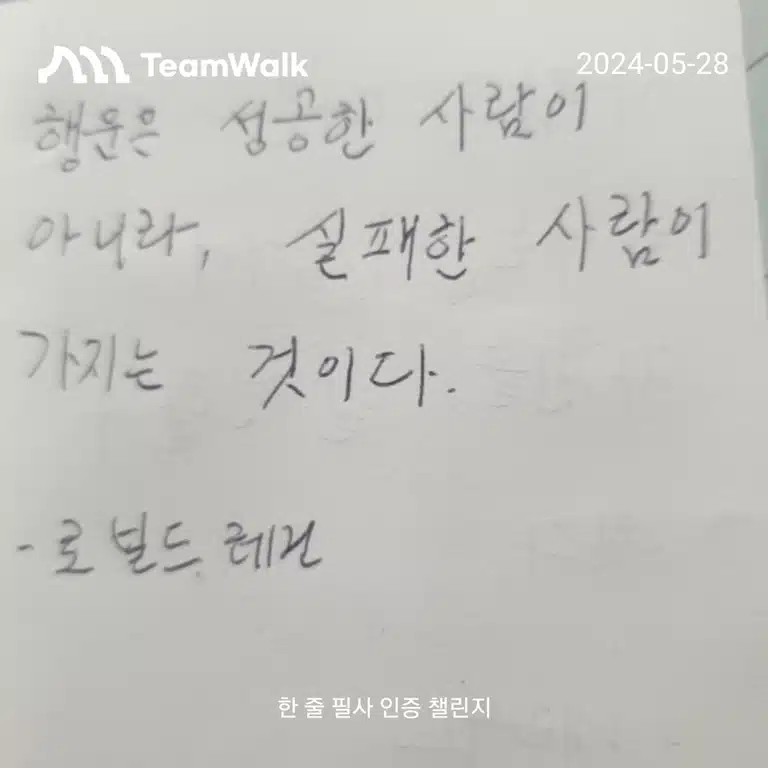 TeamWalk
2024-05-28
행운은 성공한 사람이
아니라, 실패한 사람이
가지는 것이다.
- 로널드 레건
한 줄 필사 인증 챌린지